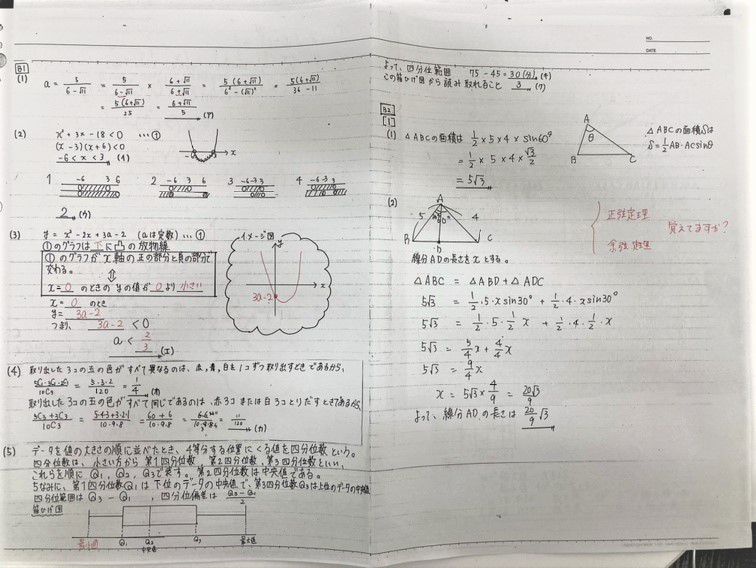 B1
(1) a = 5/(6-√11) = 5/(6-√11) × (6+√11)/(6+√11) = 5(6+√11)/(6²-(√11)²) = 5(6+√11)/(36-11)
= 5(6+√11)/25 = (6+√11)/5 (ア)
(2) x²+3x-18<0 …①
(x-3)(x+6)<0
-6<x<3 (イ)
x
1 -6 3 6
2 -6 -3 3 6
3 -6 -3 3
4 -6 -3 3
2 (ウ)
(3) y = x²-2x+3a-2 (aは定数) …①
①のグラフは下に凸の放物線
①のグラフがx軸の正の部分と負の部分で
交わる。
⇕
x=0 のときのyの値が0より小さい
x=0 のとき
y= 3a-2
つまり、 3a-2 < 0
a < 2/3 (エ)
イメージ図
y
x
3a-2
(4) 取り出した3コの玉の色がすべて異なるのは、赤,青,白を1コずつ取り出すときであるから、
= 5·3·2/120 = 1/4 (オ)
取り出した3コの玉の色がすべて同じであるのは、赤3コまたは白3コとりだすときであるから、
(5C3+3C3)/10C3 = = (60+6)/(10·9·8) = = 11/120 (カ)
(5) データを値の大きさの順に並べたとき、4等分する位置にくる値を四分位数という。
四分位数は、小さい方から第1四分位数、第2四分位数、第3四分位数といい、
これらを順にQ₁, Q₂, Q₃で表す。第2四分位数は中央値である。
ちなみに、第1四分位数Q₁は下位のデータの中央値で、第3四分位数Q₃は上位のデータの中央値
四分位範囲は Q₃-Q₁ , 四分位偏差は (Q₃-Q₁)/2
箱ひげ図
最小値 Q₁ Q₂ Q₃ 最大値
中央値
NO.
DATE
よって、四分位範囲 75-45=30(分) (キ)
この箱ひげ図から読み取れること 3 (ク)
B2
[1]
(1) △ABCの面積は 1/2×5×4×sin60°
= 1/2×5×4×√3/2
= 5√3
A
θ
B C
△ABCの面積Sは
S=1/2 AB·ACsinθ
(2)
A
5 4
B C
D
線分ADの長さをxとする。
△ABC = △ABD+△ADC
5√3 = 1/2·5·xsin30° + 1/2·4·xsin30°
5√3 = 1/2·5·1/2x + 1/2·4·1/2·x
5√3 = 5/4x + 4/4x
5√3 = 9/4x
x = 5√3×4/9 = 20√3/9
よって、線分ADの長さは 20/9√3
正弦定理
余弦定理
覚えてますか?